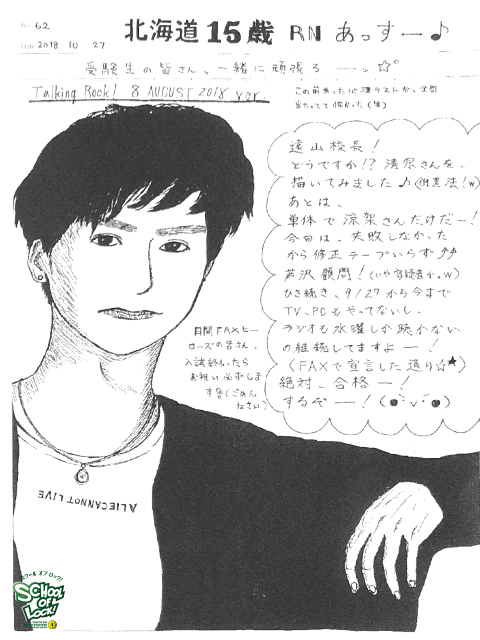 No. 62
Date 2018 10 27
北海道 15歳 RN あっすー♪
受験生の皆さん、一緒に頑張る ーッ☆°
Talking Rock! 8 AUGUST 2018 ver.
この前あった心理テストが、全問
当たってて怖かった(笑)
遠山校長!
どうですか!? 清原さんを、
描いてみました♪(倒置法!w)
あとは、
単体で涼架さんだけだー!
今日は、失敗しなかった
から修正テープいらず♪♪
芦沢顧問!
ひき続き、9/27から今まで
TV、PCもやってないし、
ラジオも水曜しか聴かない
の継続してますよー!
(FAXで宣言した通り☆★)
絶対、合格ー!
するぞー!
月間FAXヒー
ローズの皆さん、
入試終わったら
お祝い必ずしま
す(ごめん
なさい)
ALIECANNOT LIVE
スクール オブ ロック!
SCHOOL
OF
LOCK!